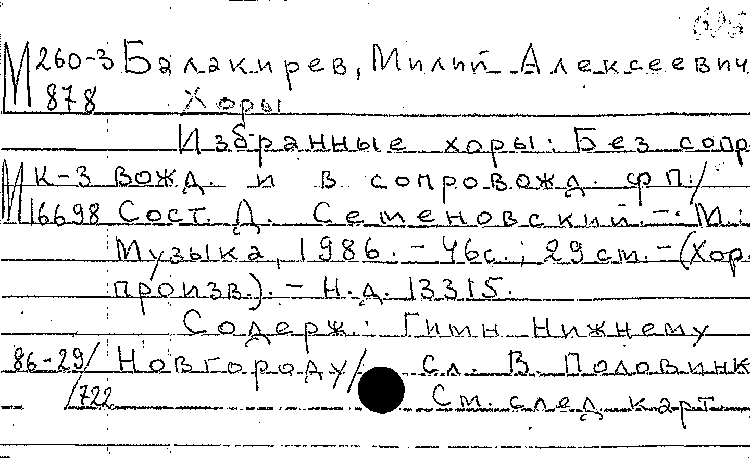 М 260-3 Балакирев, Милий Алексеевич
878 Хоры
Избранные хоры: Без сопр
М К-3 вожд. и в сопровожд. фп./
16698 Сост. Д. Семеновский. - М.:
Музыка, 1986. - 46с.; 29см. - (Хор.
произв.). - Н.д. 13315.
Содерж.: Гимн Нижнему
86-29/ Новгороду/ сл. В. Половинк
/722 См. след. карт.